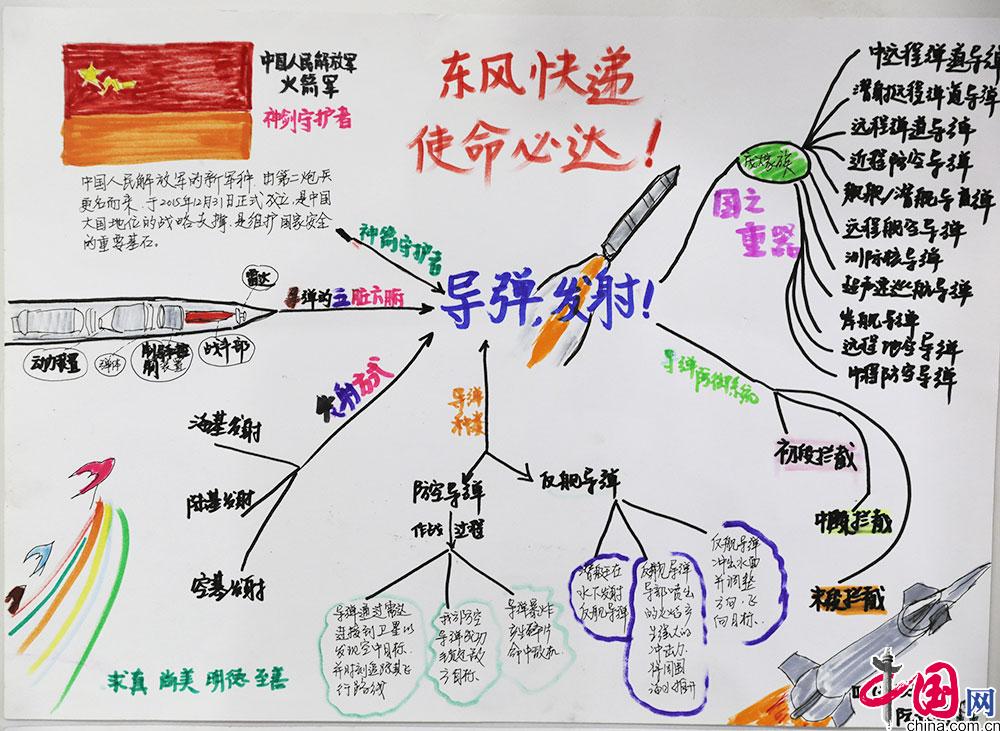 中国人民解放军
火箭军
神剑守护者
东风快递
使命必达！
中国人民解放军的新军种，由第二炮兵
更名而来，于2015年12月31日正式成立，是中国
大国地位的战略支撑，是维护国家安全
的重要基石。
神箭守护者
导弹的五脏六腑
雷达
动力装置
弹体
战斗部
导弹，发射！
国之
重器
家族
中远程弹道导弹
潜射远程弹道导弹
远程弹道导弹
近程防空导弹
远程舰空导弹
洲际核导弹
超声速巡航导弹
岸舰导弹
远程地空导弹
中程防空导弹
发射方式
海基发射
陆基发射
空基发射
导弹
种类
防空导弹
反舰导弹
作战过程
导弹通过雷达
连接到卫星以
发现空中目标
并时刻追踪其飞
行路线
我方防空
导弹成功
方目标.
导弹爆炸
产生碎片
命中敌机.
潜艇在
水下发射
反舰导弹
反舰导弹
冲击力
将周围
海水推开
反舰导弹
冲出水面
并调整
方向，飞
向目标.
导弹防御系统
初段拦截
中段拦截
末段拦截
求真 尚美 明德 至善
中国网
china.com.cn